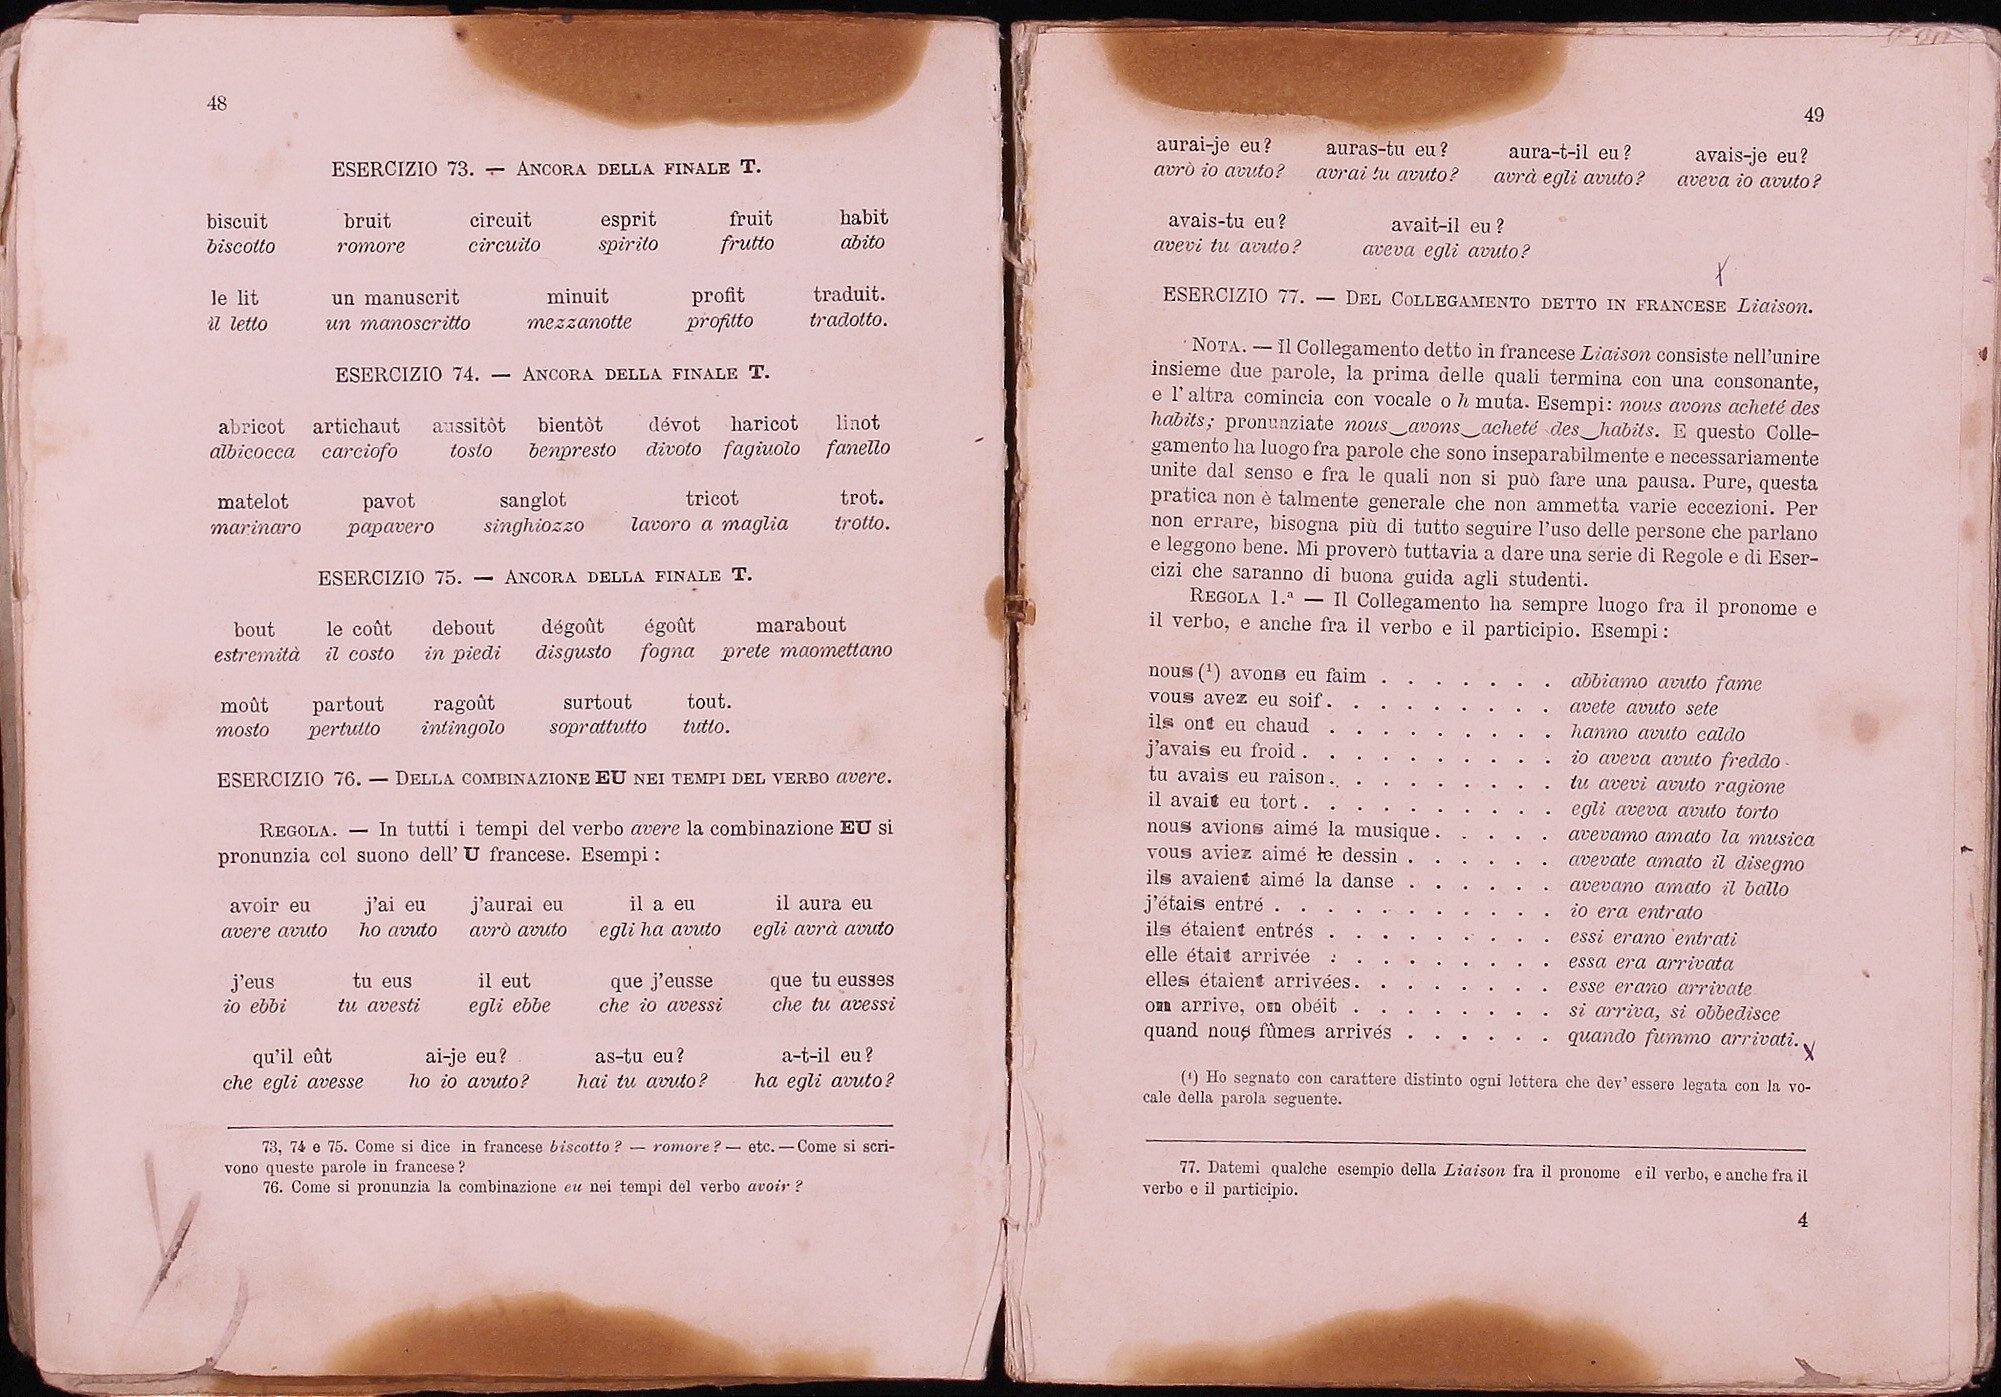 48
ESERCIZIO 73. — ANCORA DELLA FINALE T.
biscuit bruit circuit esprit fruit habit
biscotto romore circuito spirito frutto abito
le lit un manuscrit minuit profit traduit.
il letto un manoscritto mezzanotte profitto tradotto.
ESERCIZIO 74. — ANCORA DELLA FINALE T.
abricot artichaut aussitôt bientôt dévot haricot linot
albicocca carciofo tosto benpresto divoto fagiuolo fanello
matelot pavot sanglot tricot trot.
marinaro papavero singhiozzo lavoro a maglia trotto.
ESERCIZIO 75. — ANCORA DELLA FINALE T.
bout le coût debout dégoût égoût marabout
estremità il costo in piedi disgusto fogna prete maomettano
moût partout ragoût surtout tout.
mosto pertutto intingolo soprattutto tutto.
ESERCIZIO 76. — DELLA COMBINAZIONE EU NEI TEMPI DEL VERBO avere.
REGOLA. — In tutti i tempi del verbo avere la combinazione EU si
pronunzia col suono dell' U francese. Esempi :
avoir eu j'ai eu j'aurai eu il a eu il aura eu
avere avuto ho avuto avrò avuto egli ha avuto egli avrà avuto
j'eus tu eus il eut que j'eusse que tu eusses
io ebbi tu avesti egli ebbe che io avessi che tu avessi
qu'il eût ai-je eu? as-tu eu? a-t-il eu?
che egli avesse ho io avuto? hai tu avuto? ha egli avuto?
73, 74 e 75. Come si dice in francese biscotto? — romore? — etc. — Come si scri-
vono queste parole in francese?
76. Come si pronunzia la combinazione eu nei tempi del verbo avoir?
49
aurai-je eu? auras-tu eu? aura-t-il eu? avais-je eu?
avrò io avuto? avrai tu avuto? avrà egli avuto? aveva io avuto?
avais-tu eu? avait-il eu?
avevi tu avuto? aveva egli avuto?
ESERCIZIO 77. — DEL COLLEGAMENTO DETTO IN FRANCESE Liaison.
NOTA. — Il Collegamento detto in francese Liaison consiste nell'unire
insieme due parole, la prima delle quali termina con una consonante,
e l'altra comincia con vocale o h muta. Esempi: nous avons acheté des
habits; pronunziate nous‿avons‿acheté des‿habits. E questo Colle-
gamento ha luogo fra parole che sono inseparabilmente e necessariamente
unite dal senso e fra le quali non si può fare una pausa. Pure, questa
pratica non è talmente generale che non ammetta varie eccezioni. Per
non errare, bisogna più di tutto seguire l'uso delle persone che parlano
e leggono bene. Mi proverò tuttavia a dare una serie di Regole e di Eser-
cizi che saranno di buona guida agli studenti.
REGOLA 1.ª — Il Collegamento ha sempre luogo fra il pronome e
il verbo, e anche fra il verbo e il participio. Esempi :
nous (¹) avons eu faim . . . . . . . abbiamo avuto fame
vous avez eu soif. . . . . . . . . avete avuto sete
ils ont eu chaud . . . . . . . . . hanno avuto caldo
j'avais eu froid . . . . . . . . . . io aveva avuto freddo
tu avais eu raison. . . . . . . . . tu avevi avuto ragione
il avait eu tort . . . . . . . . . . egli aveva avuto torto
nous avions aimé la musique . . . . . avevamo amato la musica
vous aviez aimé le dessin . . . . . . avevate amato il disegno
ils avaient aimé la danse . . . . . . avevano amato il ballo
j'étais entré . . . . . . . . . . . io era entrato
ils étaient entrés . . . . . . . . . essi erano entrati
elle était arrivée . . . . . . . . . essa era arrivata
elles étaient arrivées. . . . . . . . esse erano arrivate
on arrive, on obéit . . . . . . . . si arriva, si obbedisce
quand nous fûmes arrivés . . . . . . quando fummo arrivati.
(¹) Ho segnato con carattere distinto ogni lettera che dev' essere legata con la vo-
cale della parola seguente.
77. Datemi qualche esempio della Liaison fra il pronome e il verbo, e anche fra il
verbo e il participio.
4